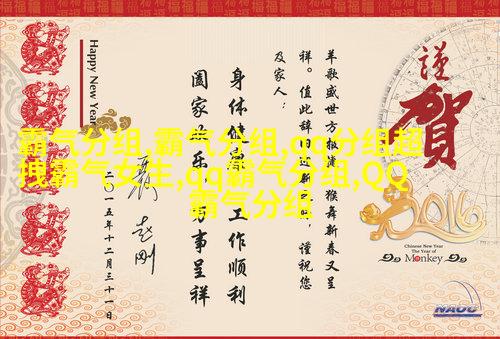 霸气分组,霸气分组,qq分组超
拽霸气女生,qq霸气分组,QQ
霸气分组
謹
賀
2016
Chinese New Year
The Year of
Monkey
NAOC
羊歌盛世方 猴舞新春又呈
祥。值此辞 谨祝您
及家人：
身体健 工作顺利
阖家 乐 万事呈祥
赵刚
二〇一五年十二月三十一日
Happy New Year